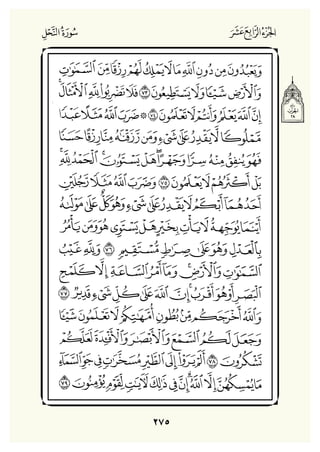 سُورَةُ النَّحْلِ
الجُزْءُ الرَّابِعَ عَشَرَ
وَيَعْبُدُونَ مِن دُونِ اللَّهِ مَا لَا يَمْلِكُ لَهُمْ رِزْقًا مِّنَ السَّمَاوَاتِ
وَالْأَرْضِ شَيْئًا وَلَا يَسْتَطِيعُونَ ٧٣ فَلَا تَضْرِبُوا لِلَّهِ الْأَمْثَالَ
إِنَّ اللَّهَ يَعْلَمُ وَأَنتُمْ لَا تَعْلَمُونَ ٧٤ ۞ ضَرَبَ اللَّهُ مَثَلًا عَبْدًا
مَّمْلُوكًا لَّا يَقْدِرُ عَلَىٰ شَيْءٍ وَمَن رَّزَقْنَاهُ مِنَّا رِزْقًا حَسَنًا
فَهُوَ يُنفِقُ مِنْهُ سِرًّا وَجَهْرًا هَلْ يَسْتَوُونَ الْحَمْدُ لِلَّهِ
بَلْ أَكْثَرُهُمْ لَا يَعْلَمُونَ ٧٥ وَضَرَبَ اللَّهُ مَثَلًا رَّجُلَيْنِ
أَحَدُهُمَا أَبْكَمُ لَا يَقْدِرُ عَلَىٰ شَيْءٍ وَهُوَ كَلٌّ عَلَىٰ مَوْلَاهُ
أَيْنَمَا يُوَجِّههُّ لَا يَأْتِ بِخَيْرٍ هَلْ يَسْتَوِي هُوَ وَمَن يَأْمُرُ
بِالْعَدْلِ وَهُوَ عَلَىٰ صِرَاطٍ مُّسْتَقِيمٍ ٧٦ وَلِلَّهِ غَيْبُ
السَّمَاوَاتِ وَالْأَرْضِ وَمَا أَمْرُ السَّاعَةِ إِلَّا كَلَمْحِ
الْبَصَرِ أَوْ هُوَ أَقْرَبُ إِنَّ اللَّهَ عَلَىٰ كُلِّ شَيْءٍ قَدِيرٌ ٧٧
وَاللَّهُ أَخْرَجَكُم مِّن بُطُونِ أُمَّهَاتِكُمْ لَا تَعْلَمُونَ شَيْئًا
وَجَعَلَ لَكُمُ السَّمْعَ وَالْأَبْصَارَ وَالْأَفْئِدَةَ لَعَلَّكُمْ
تَشْكُرُونَ ٧٨ أَلَمْ يَرَوْا إِلَى الطَّيْرِ مُسَخَّرَاتٍ فِي جَوِّ السَّمَاءِ
مَا يُمْسِكُهُنَّ إِلَّا اللَّهُ إِنَّ فِي ذَٰلِكَ لَآيَاتٍ لِّقَوْمٍ يُؤْمِنُونَ ٧٩
٢٧٥